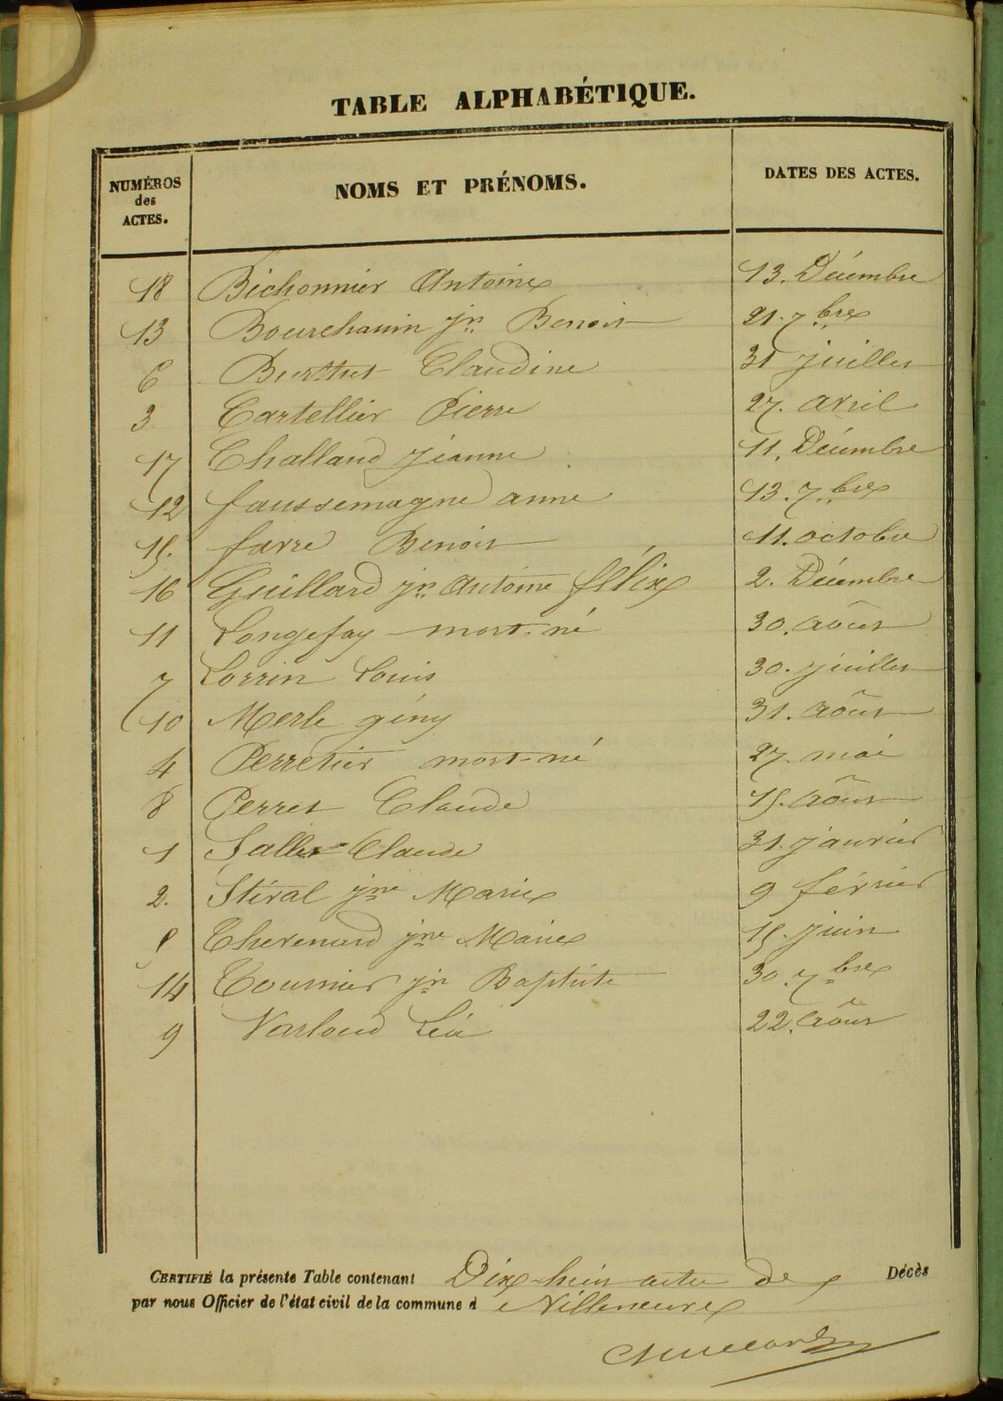 TABLE ALPHABÉTIQUE.
NUMÉROS des ACTES. NOMS ET PRÉNOMS. DATES DES ACTES.
18 Bichonnier Antoine 13. Décembre
13 Bourchanin jn Benoit 21. 7bre
6 Burthet Claudine 31 juillet
3 Cartellier Pierre 27. avril
17 Challand jeanne 11. Décembre
12 faussemagne anne 13. 7bre
15. farre Benoit 11. octobre
16 Guillard jn Antoine félix 2. Décembre
11 Longefay mort-né 30. Août
7 Lorrin Louis 30. juillet
10 Merle gény 31. Août
4 Perretier mort-né 27. mai
8 Perret Claude 15. Août
1 Salles Claude 31. janvier
2. Stéval jne Marie 9 février
5 Thevenard jne Marie 15. juin
14 Tournier jn Baptiste 30. 7bre
9 Varloud Léa 22. Août
CERTIFIÉ la présente Table contenant Dix-huit actes de Décès
par nous Officier de l'état civil de la commune d e Villeneuve